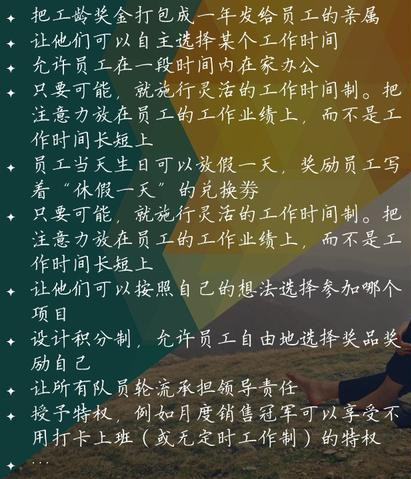 把工龄奖金打包成一年发给员工的亲属
让他们可以自主选择某个工作时间
允许员工在一段时间内在家办公
只要可能，就施行灵活的工作时间制。把
注意力放在员工的工作业绩上，而不是工
作时间长短上
员工当天生日可以放假一天，奖励员工写
着“休假一天”的兑换券
只要可能，就施行灵活的工作时间制。把
注意力放在员工的工作业绩上，而不是工
作时间长短上
让他们可以按照自己的想法选择参加哪个
项目
设计积分制，允许员工自由地选择奖品奖
励自己
让所有队员轮流承担领导责任
授予特权，例如月度销售冠军可以享受不
用打卡上班（或无定时工作制）的特权
...